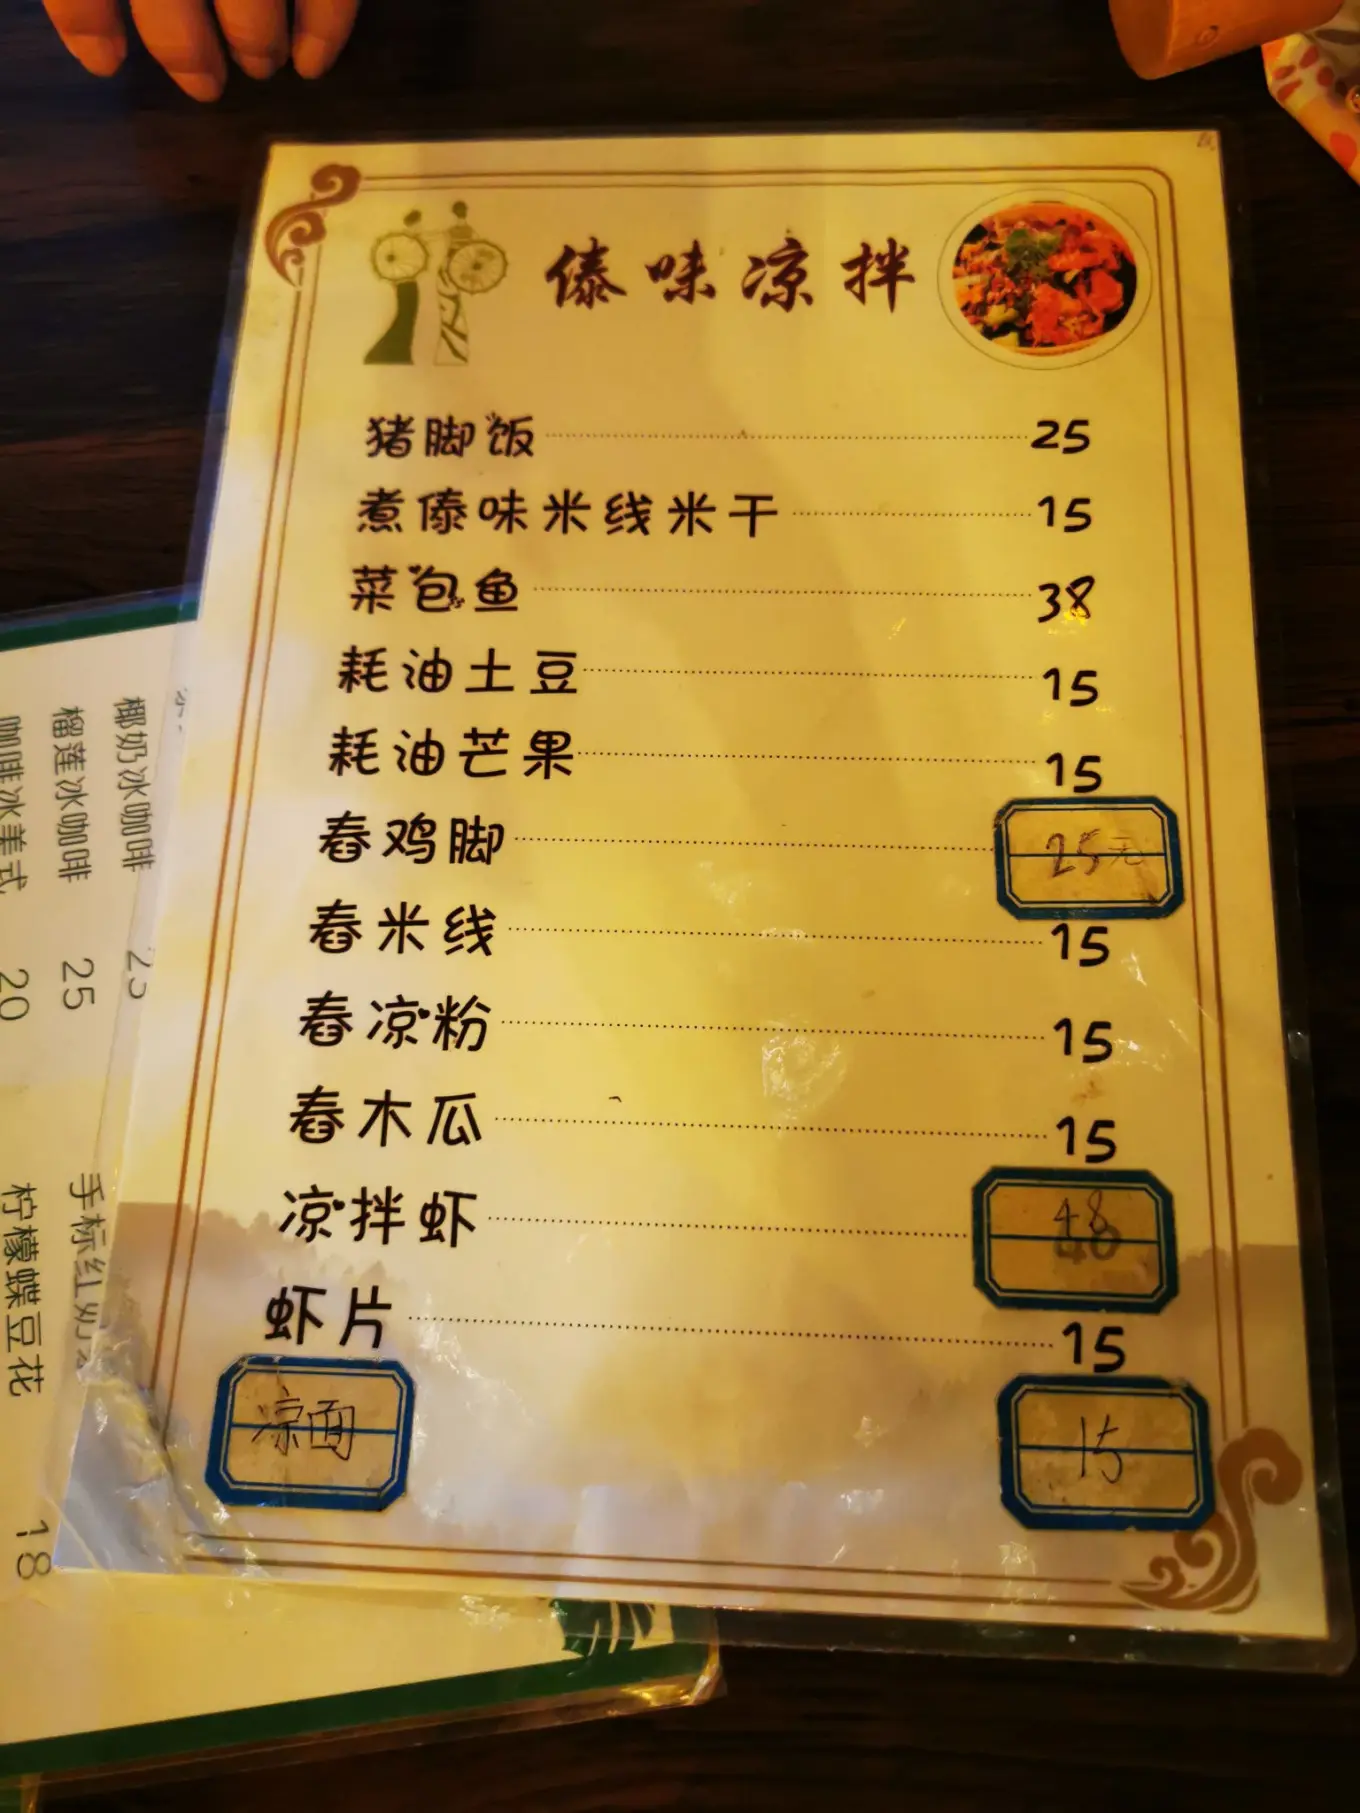 傣味凉拌
猪脚饭 25
煮傣味米线米干 15
菜包鱼 38
耗油土豆 15
耗油芒果 15
舂鸡脚 25元
舂米线 15
舂凉粉 15
舂木瓜 15
凉拌虾 48
虾片 15
凉面 15
椰奶冰咖啡 25
榴莲冰咖啡 25
咖啡冰美式 20
手标红奶
柠檬蝶豆花 18